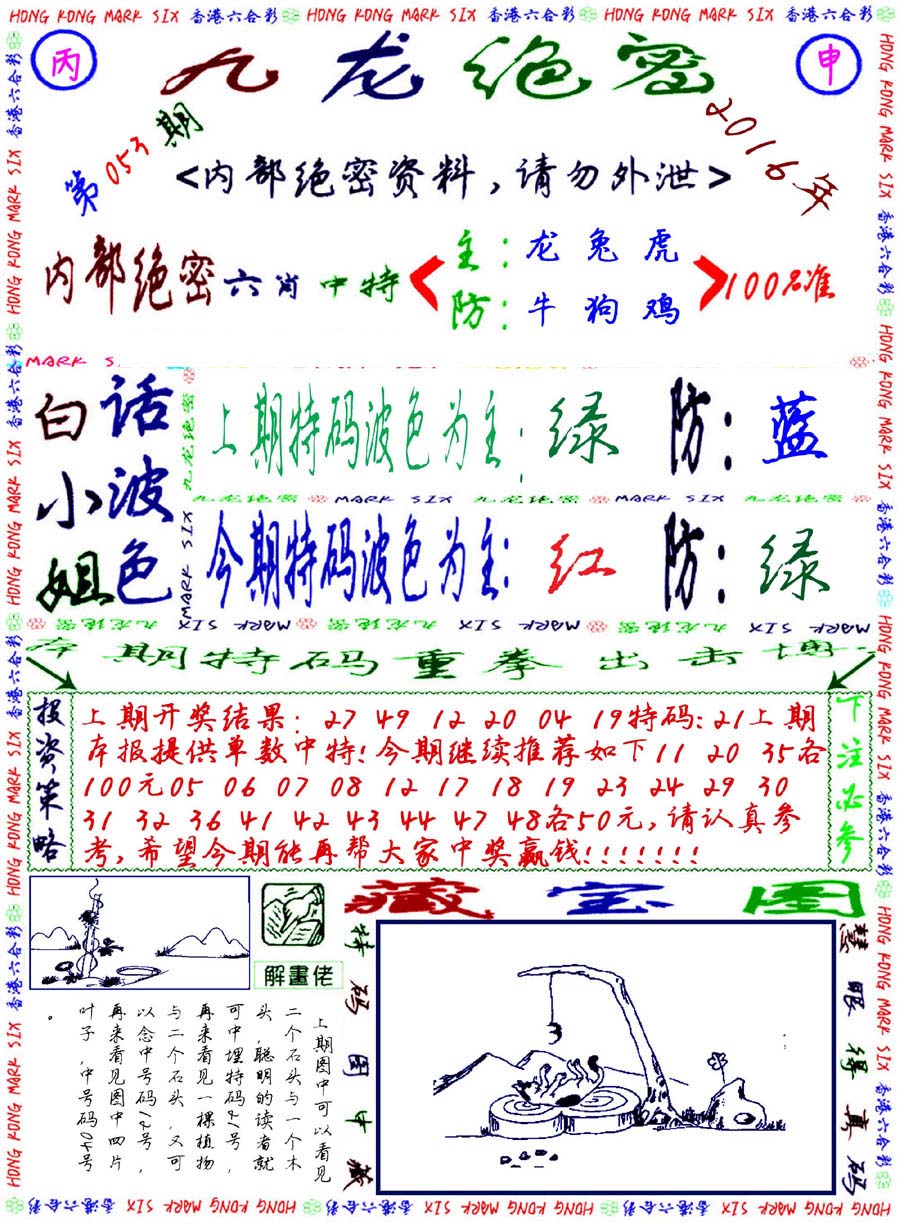 HONG KONG MARK SIX 香港六合彩 HONG KONG MARK SIX 香港六合彩 HONG KONG MARK SIX 香港六合彩
丙
九龙绝密
申
第053期
2016年
<内部绝密资料,请勿外泄>
内部绝密六肖中特
主:龙兔虎
防:牛狗鸡
100%准
MARK S
白话
小波
姐色
上期特码波色为主:绿 防:蓝
九龙绝密 MARK SIX 九龙绝密 MARK SIX 九龙绝密
今期特码波色为主:红 防:绿
九龙绝密 MARK SIX 九龙绝密 MARK SIX 九龙绝密 MARK SIX
期特码重拳出击
投资策略
上期开奖结果: 27 49 12 20 04 19特码:21上期
本报提供单数中特!今期继续推荐如下11 20 35各
100元05 06 07 08 12 17 18 19 23 24 29 30
31 32 36 41 42 43 44 47 48各50元,请认真参
考,希望今期能再帮大家中奖赢钱!!!!!!!
下注必参
解畫佬
上期图中可以看见
二个石头与一个木
头,聪明的读者就
可中埋特码21号,
再来看见一棵植物
与二个石头,又可
以念中号码12号,
再来看见图中四片
叶子,中号码04号
。
藏宝图
特码图中藏
慧眼得真码
HONG KONG MARK SIX 香港六合彩 HONG KONG MARK SIX 香港六合彩 HONG KONG MARK SIX 香港六合彩